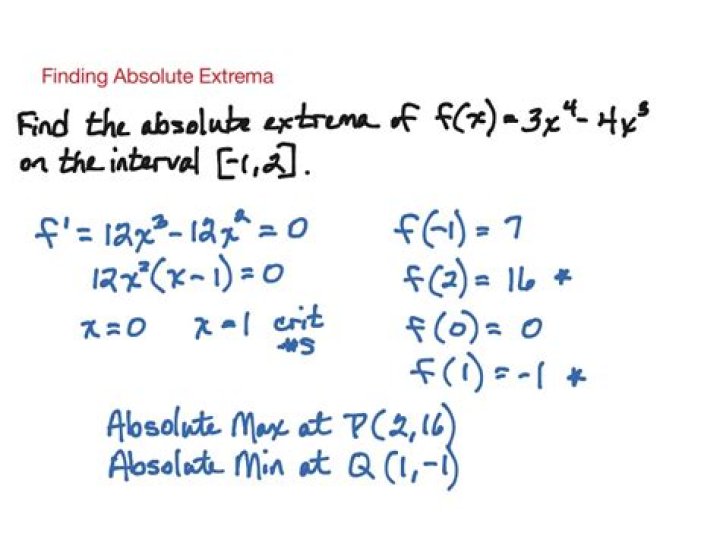 Finding Absolute Extrema
Find the absolute extrema of f(x) = 3x⁴ - 4x³
on the interval [-1,2].
f' = 12x³ - 12x² = 0
12x²(x - 1) = 0
x = 0 x = 1 crit
#s
f(-1) = 7
f(2) = 16 *
f(0) = 0
f(1) = -1 *
Absolute Max at P(2,16)
Absolute Min at Q(1,-1)